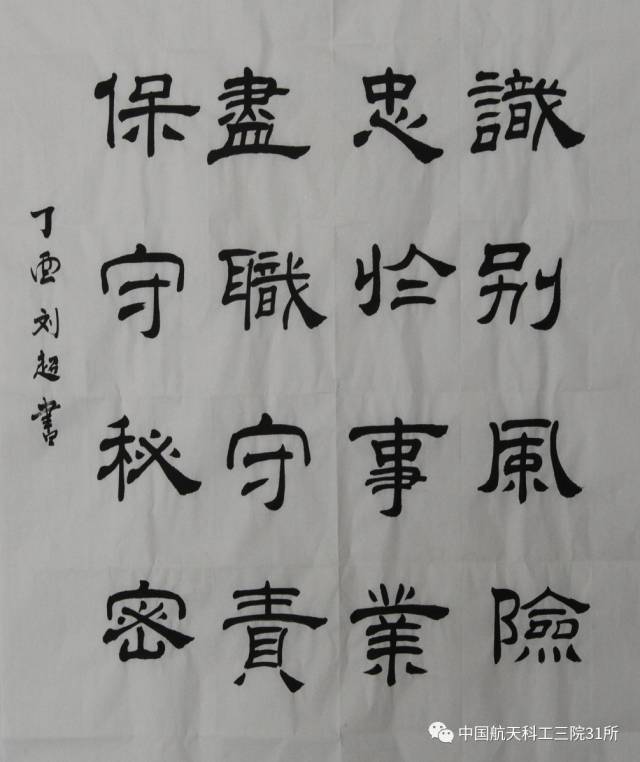 識别風險
忠於事業
盡職守責
保守秘密
丁酉刘超書
中国航天科工三院31所